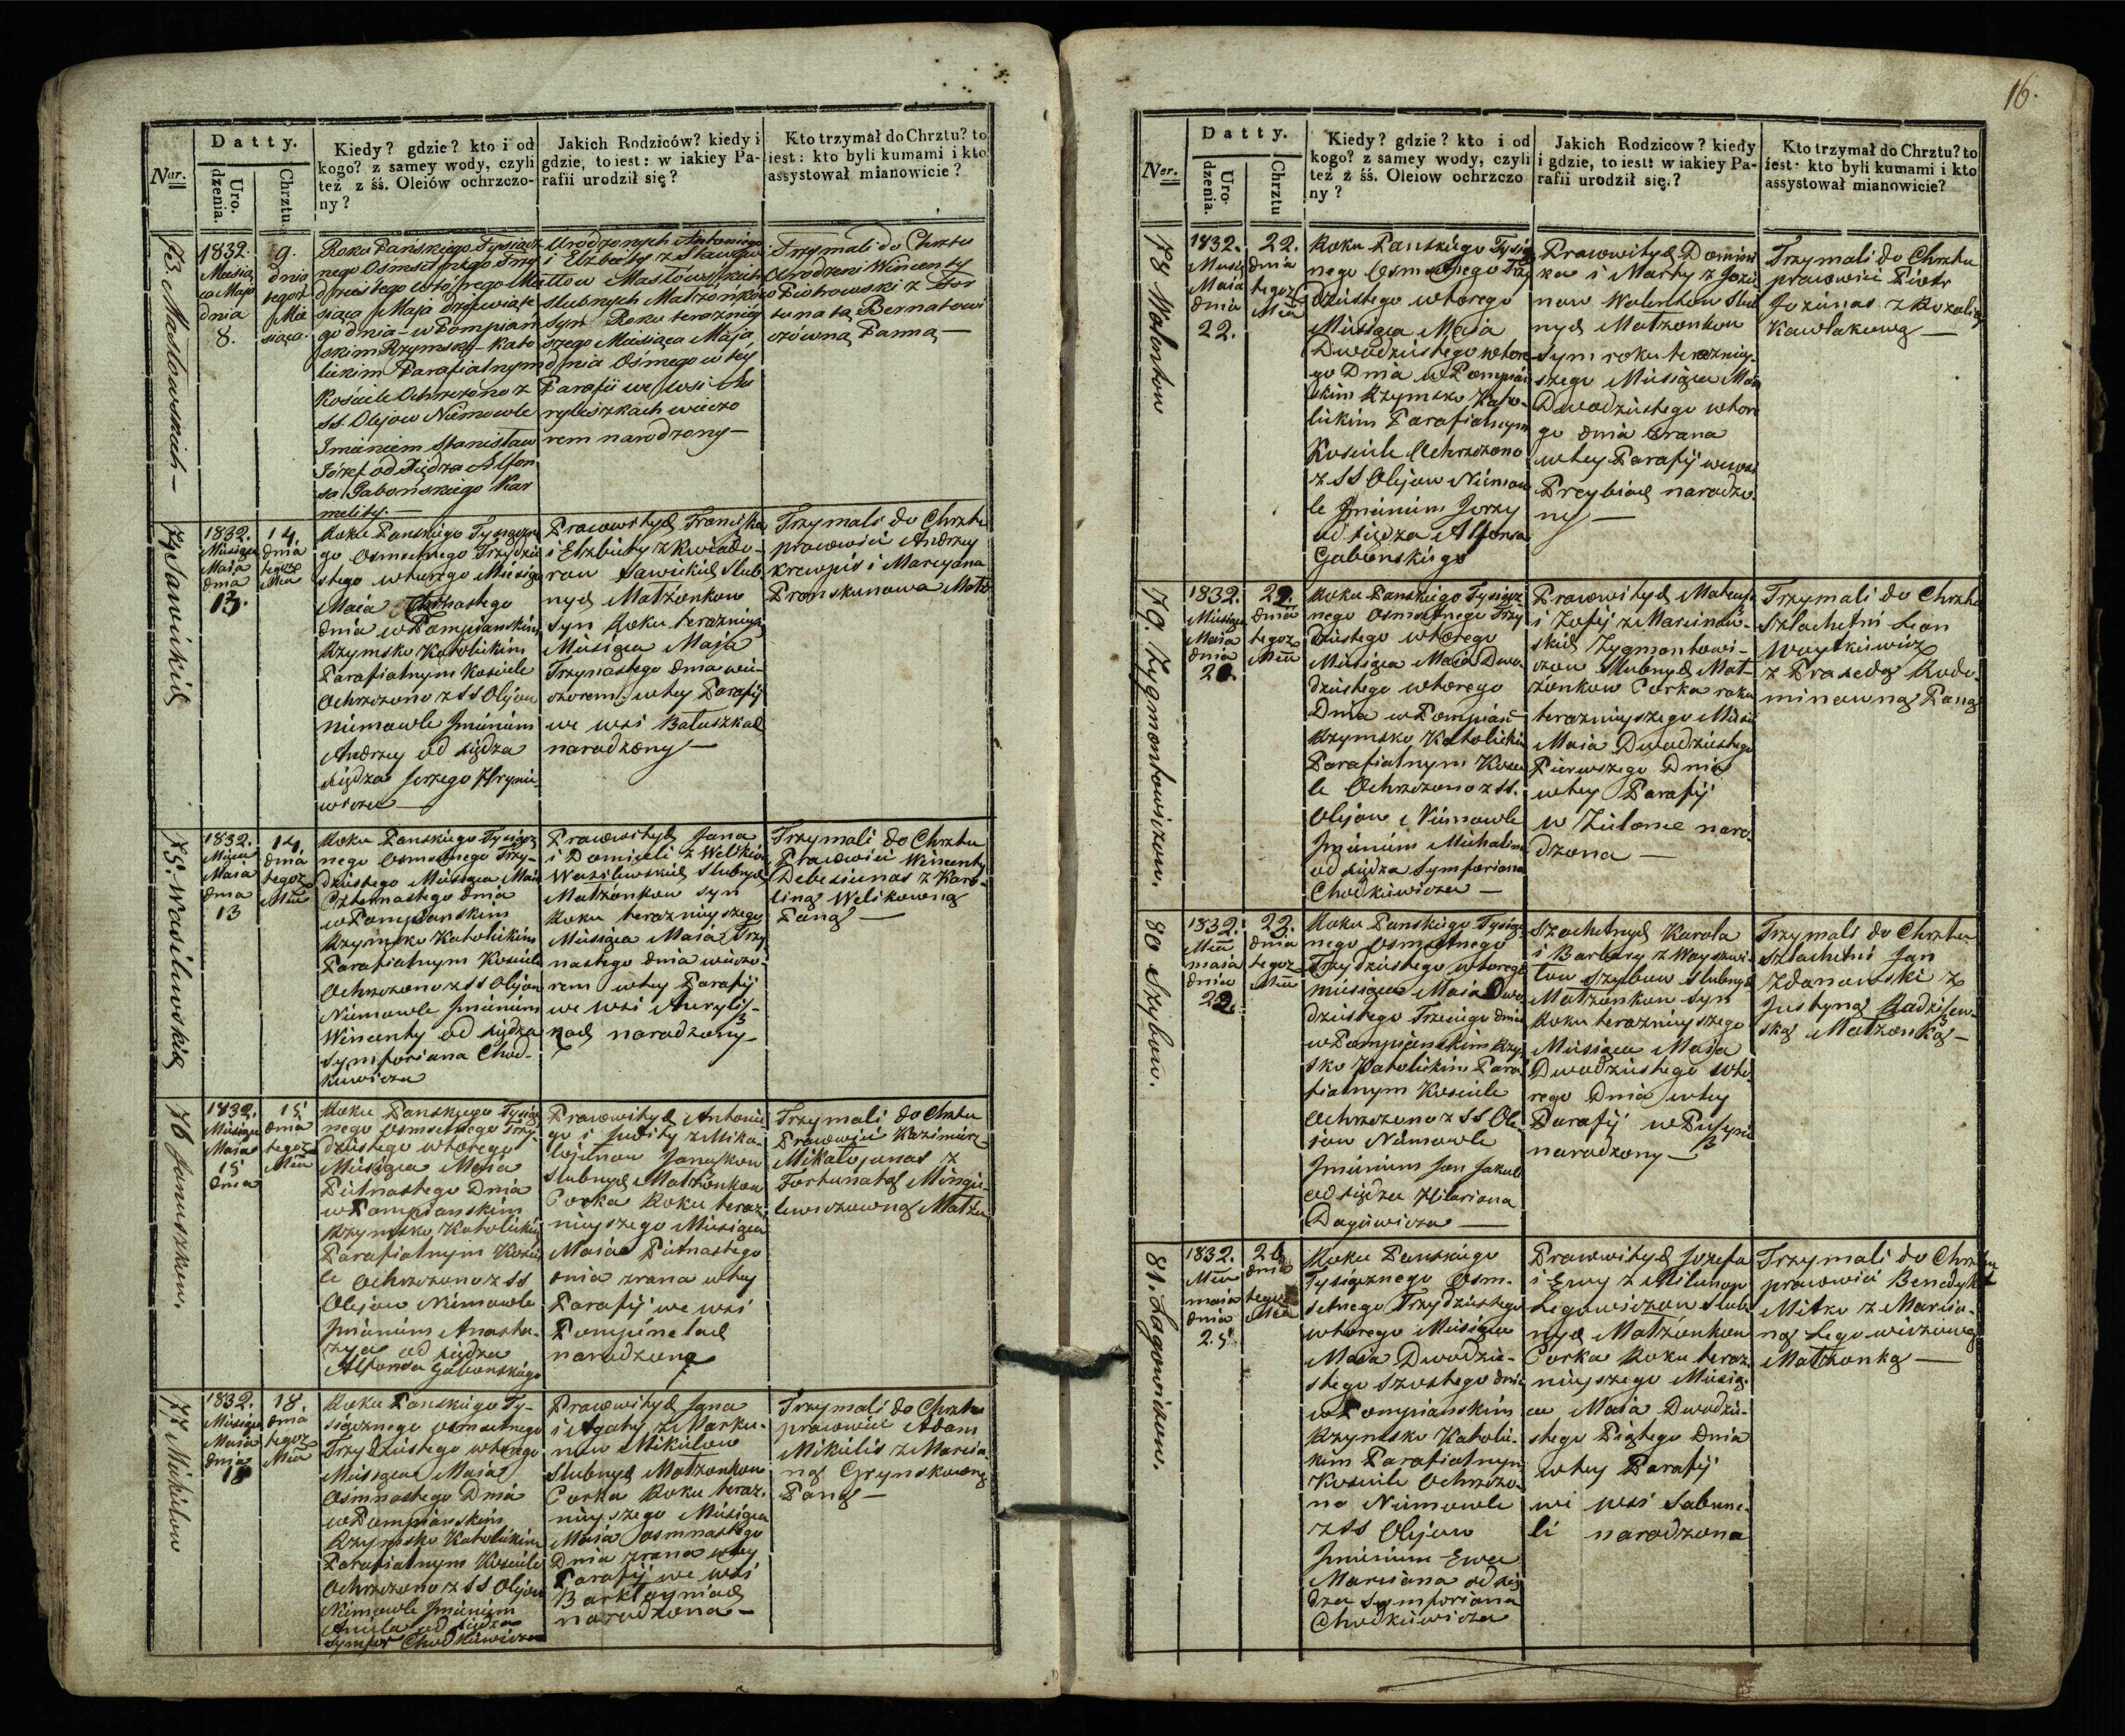 16.
Datty.
Nar.
Uro.
dzenia.
Chrztu.
Kiedy? gdzie? kto i od
kogo? z samey wody, czyli
też z śś. Oleiów ochrzczo-
ny?
Jakich Rodziców? kiedy i
gdzie, to iest: w iakiey Pa-
rafii urodził się?
Kto trzymał do Chrztu? to
iest: kto byli kumami i kto
assystował mianowicie?
73. Masłowskich —
1832.
Miesią
ca Maja
dnia
8.
9.
dnia
tegoż
Mie
siąca.
Roku Pańskiego Tysiącz
nego Ośmsetnego Trzy
dziestego wtórego Mie
siąca Maja dziewiąte
go dnia w Pompiań
skim Rzymsko-Kato
lickim Parafialnym
Kościele Ochrzczono z
SS. Olejow Niemowle
Imieniem Stanisław
Józef od Xiędza Alfon
sa Gabońskiego Kar
melity.—
Urodzonych Antoniego
i Elżbiety z
Masłowskich
slubnych Małżónków
Syn Roku teraźniey
szego Miesiąca Maja
dnia Ósmego w tey
Parafii we Wsi
wieczo
rem narodzony—
Trzymali do Chrztu
Urodzeni Wincenty
Piotrowski z For
tunatą Bernatowi
czówną Panną —
74 Sawickich
1832.
Miesiąca
Maia
dnia
13.
14.
dnia
tegoż
Mca
Roku Panskiego Tysiączne
go Osmsetnego Trzydzie
stego wtorego Miesiąca
Maia Czternastego
dnia w Pompianskim
Rzymsko Katolickim
Parafialnym Kosciele
Ochrzczono z SS Olejow
niemowle Jmieniem
Andrzey od xiędza
xiędza Jerzego Hrynie
wicza
Prawowitych Franciszka
i Elzbiety z Kwiado-
row Sawickich Slub
nych Małżonkow
Syn Roku terazniejsz
Miesiąca Maja
Trzynastego dnia wie-
czorem w tey Parafij
we wsi Bałuszkach
narodzony —
Trzymali do Chrztu
prawowici Andrzey
i Maryana
75. Wasilewskich
1832.
Mca
Maia
dnia
13
14.
dnia
tegoż
Mca
Roku Panskiego Tysiącz
nego Osmsetnego Trzy-
dziestego Miesiąca Maia
Czternastego dnia
w Pompianskim
Rzymsko Katolickim
Parafialnym Kosciele
Ochrzczono z SS Olejow
Niemowle Jmieniem
Wincenty od xiędza
Symforiana Chod-
kiewicza
Prawowitych Jana
i Domiceli z Welikow
Wasilewskich Slubnych
Małżonkow syn
Roku terazniejszego
Miesiąca Maia Trzy
nastego dnia wieczo-
rem w tey Parafij
we wsi
narodzony—
Trzymali do Chrztu
Prawowici Wincenty
Debesiunas z Karo-
liną Welikowną
Panną —
76 Januszkow.
1832.
Miesiąca
Maia
15
dnia
15.
dnia
tegoż
Mca
Roku Panskiego Tysiącz
nego Osmsetnego Trzy-
dziestego wtorego
Miesiąca Maia
Pietnastego Dnia
w Pompianskim
Rzymsko Katolickim
Parafialnym Koscie
le Ochrzczono z SS
Olejow Niemowle
Jmieniem Anasta-
zya od xiędza
Alfonsa Gabonskiego
Prawowitych Antonie
go i Judity z Mika-
lojunow Januszkow
Slubnych Małżonkow
Corka Roku teraz-
niejszego Miesiąca
Maia Pietnastego
dnia zrana w tey
Parafij we wsi
narodzona
Trzymali do Chrztu
Prawowici Kazimierz
Mikalojunas z
Fortunatą Mingie-
lewiczowną
77 Mikulow
1832.
Miesiąca
Maia
dnia
18
18.
dnia
tegoż
Mca
Roku Panskiego Ty-
siącznego osmsetnego
Trzydziestego wtorego
Miesiąca Maia
Osmnastego Dnia
w Pompianskim
Rzymsko Katolickim
Parafialnym Kosciele
Ochrzczono z SS Olejow
Niemowle Jmieniem
Aniela od xiędza
Symfor Chodkiewicza
Prawowitych Jana
i Agaty z Marku-
now Mikulow
Slubnych Małżonkow
Corka Roku teraz-
niejszego Miesiąca
Maia osmnastego
Dnia zrana w tey
Parafij we wsi
narodzona —
Trzymali do Chrztu
prawowici Adam
Mikulis z Marcia-
ną Grynskowną
Panną —
Datty.
Nar.
Uro-
dzenia.
Chrztu
Kiedy? gdzie? kto i od
kogo? z samey wody, czyli
też z śś. Oleiow ochrzczo
ny?
Jakich Rodzicow? kiedy
i gdzie, to iest: w iakiey Pa-
rafii urodził się.?
Kto trzymał do Chrztu? to
iest: kto byli kumami i kto
assystował mianowicie?
78 Walentow
1832.
Miesią
Maia
dnia
22.
22.
dnia
tegoż
Mca
Roku Panskiego Tysią
nego Osmsetnego Trzy
dziestego wtorego
Miesiąca Maia
Dwudziestego wtore
go Dnia w Pompian
skim Rzymsko Kato-
lickim Parafialnym
Kosciele Ochrzczono
z SS Olejow Niemow
le Jmieniem Jerzy
od xiędza Alfonsa
Gabonskiego
Prawowitych Domini
ka i Marty z Jozi
now Walentow Slub
nych Małżonkow
Syn roku terazniey-
szego Miesiąca Maia
Dwudziestego wtore
go dnia zrana
w tey Parafij we wsi
narodzo-
ny —
Trzymali do Chrztu
prawowici Piotr
Jozunas z Rozalią
Kawlakową —
79. Zygmontowiczow.
1832.
Miesiąca
Maia
dnia
22.
dnia
tegoż
Mca
Roku Panskiego Tysiącz
nego Osmsetnego Trzy
dziestego wtorego
Miesiąca Maia Dwu
dziestego wtorego
Dnia w Pompian
Rzymsko Katolickim
Parafialnym Koscie
le Ochrzczono z SS.
Olejow Niemowle
Jmieniem Michalina
od xiędza Symforiana
Chodkiewicza —
Prawowitych Mateusza
i Zofij z Marcinow-
skich Zygmontowi-
czow Slubnych Mał-
żonkow Corka roku
terazniejszego Miesiąca
Maia Dwudziestego
Pierwszego Dnia
w tey Parafij
w naro-
dzona —
Trzymali do Chrztu
Szlachetni Leon
Woytkiewicz
z Praxedą Rodo-
minowną Panną
80 Szylow.
1832.
Mca
maia
dnia
22.
23.
dnia
tegoż
Mca
Roku Panskiego Tysiąc
nego Osmsetnego
Trzydziestego wtorego
miesiąca Maia Dwu-
dziestego Trzeciego dnia
w Pompianskim Rzym
sko Katolickim Para
fialnym Kosciele
Ochrzczono z SS Ole
jow Niemowle
Jmieniem Jan Jakub
od xiędza Hilariana
Dagiewicza —
Szlachetnych Karola
i Barbary z Wayszwi-
łow Szylow slubnych
Małżonkow Syn
Roku terazniejszego
Miesiąca Maia
Dwudziestego wto-
rego Dnia w tey
Parafij
narodzony—
Trzymali do Chrztu
Szlachetni Jan
Zdanowski z
Justyną Radziszew-
ską Małżonką —
81. Legowiczow.
1832.
Mca
maia
dnia
25
26
dnia
tegoż
Mca
Roku Panskiego
Tysiącznego Osm-
setnego Trzydziestego
wtorego Miesiąca
Maia Dwudzie-
stego Szostego dnia
w Pompianskim
Rzymsko Katolic-
kim Parafialnym
Kosciele Ochrzczo-
no Niemowle
z SS Olejow
Jmieniem Ewa
Marciana od xię
dza Symforiana
Chodkiewicza
Prawowitych Jozefa
i Ewy z Milunow
Legowiczow Slub-
nych Małżonkow
Corka Roku teraz-
niejszego Miesią-
ca Maia Dwudzie-
stego Piątego Dnia
w tey Parafij
we wsi Sabune-
li narodzona
Trzymali do Chrztu
prawowici Benedykt
Mitko z Marcia-
ną Legowiczową
Małżonką —